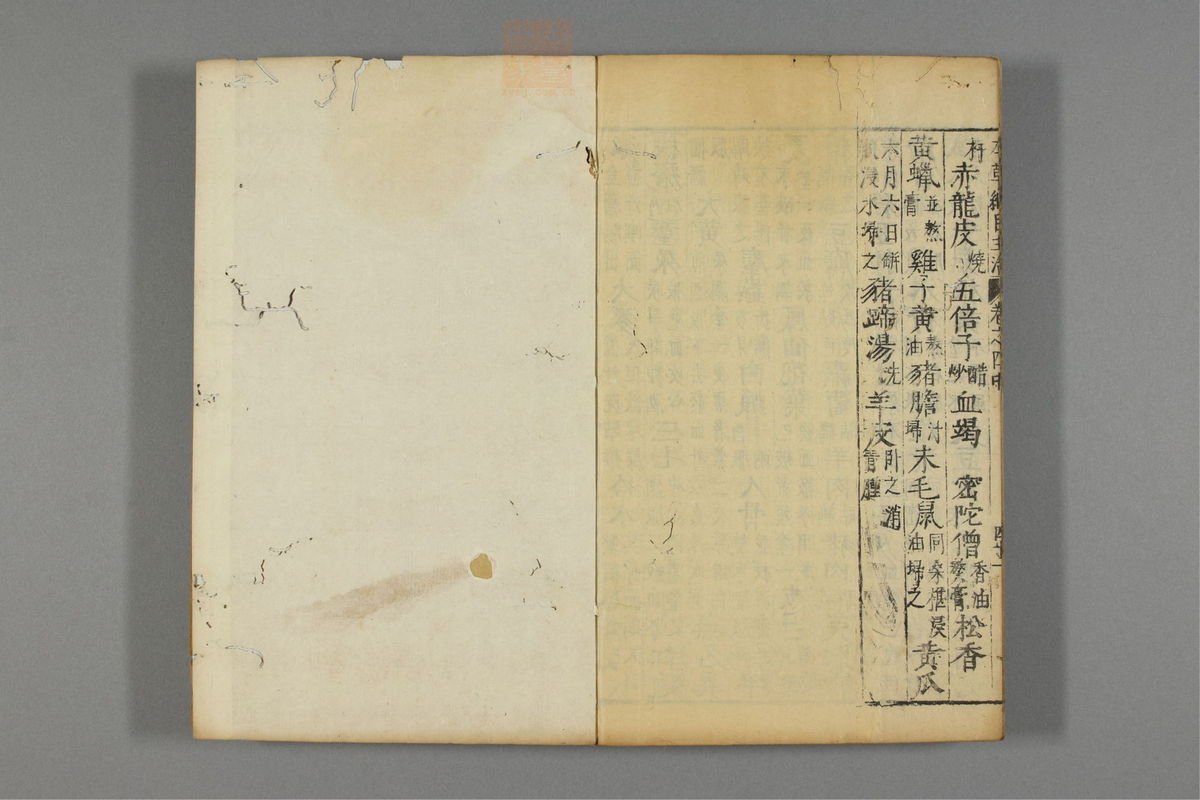 本草綱目主治 卷之四中 四十一
杵赤龍皮燒五倍子醋炒血竭密陀僧香油熬膏松香
黃蠟並熬膏雞子黃熬油豬膽汁掃未毛鼠同桑椹浸油掃之黃瓜
六月六日缾浸水掃之豬蹄湯洗羊皮臥之消青腫